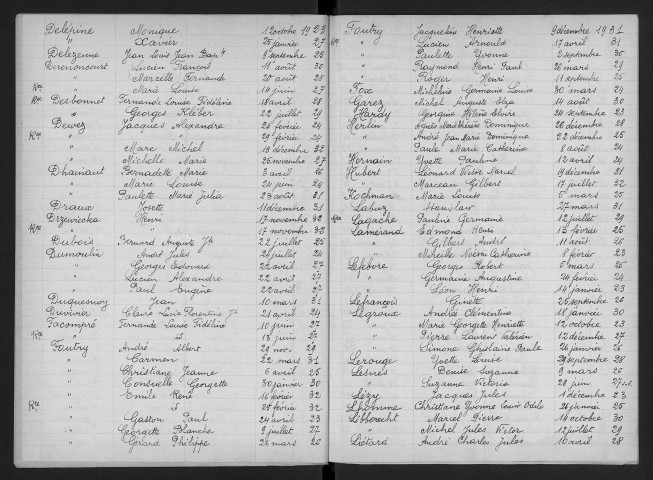 Delépine Monique 12 octobre 1923
" Xavier 25 janvier 27
Delezenne Jean Louis Jean Bapte 9 septembre 32
Derenoncourt Lucien François 11 août 30
" Marcelle Fernande 20 août 28
Nce " Marie Louise 14 juin 27
Rce Desbonnet Fernande Louise Fidéline 18 avril 28
" Georges Kléber 22 juillet 29
Devez Jacques Alexandre 26 février 24
Rce " " 29 février 24
" Marc Michel 13 décembre 32
" Michelle Marie 25 novembre 27
Dhainaut Bernadette Marie 3 avril 26
" Marie Louise 24 juin 24
" Paulette Marie Julia 23 août 31
Draux Josette 11 décembre 31
Drzewiecka Henri 17 novembre 32
Rce " " 17 novembre 32
Dubois Fernand Auguste 22 juillet 25
Dumoulin André Jules 26 juillet 24
" Georges Edouard 22 avril 27
" Lucien Alexandre 22 avril 27
" Paul Eugène 22 avril 27
Duquesnoy Jean 10 mars 31
Duvivier Claire Luce Florentine 21 avril 24
Facompré Fernande Louise Fidéline 10 juin 27
Nce " id 13 juin 27
Foutry André Albert 29
" Carmen 22 mars 31
" Christiane Jeanne 6 avril 25
" Consuelle Georgette 30 janvier 30
" Emile René 16 février 32
Rce " id 25 février 32
" Gaston Paul 24 avril 23
" Georgette Blanche 9 juillet 27
" Gérard Philippe 26 mars 26
Foutry Jacqueline Henriette 9 décembre 1931
Nce " Lucien Arnould 17 avril 31
" Paulette Yvonne 2 septembre 30
" Raymond Henri Paul 26 mars 29
" Roger Henri 11 septembre 25
Fox Micheline Germaine Louise 30 mars 24
Garez Michel Auguste 14 août 30
Hardy Georgine Hélène Elvire 24 septembre 23
Herlin Agnès Marie Thérèse Dominique 26 décembre 28
" André Jean Marie Dominique 22 décembre 25
" Paule Marie Catherine 1 août 24
Hermain Yvette Pauline 12 avril 24
Hubert Léonard Victor Marcel 19 décembre 31
" Marceau Gilbert 17 juillet 32
Kochman Marie Louise 5 mars 25
Labuz Stanislaw 27 mars 31
Rce Lagache Pauline Germaine 12 juillet 29
Lamérand Edmond Henri 13 février 25
" Gilbert André 11 août 26
" Mireille Noémi Catherine 8 février 23
Lefebvre Georges Robert 5 mars 25
" Germaine Augustine 24 février 24
" Léon Henri 14 janvier 23
Lefrançois Ginette 25 septembre 26
Legroux Andrée Clémentine 18 janvier 30
" Marie Georgette Henriette 12 octobre 23
" Pierre Laurent Valérien 12 décembre 27
" Simone Ghislaine Paule 26 janvier 25
Lerouge Yvette Louise 29 septembre 28
Lesnes Denise Suzanne 9 mars 26
" Suzanne Victoria 28 juin 27
Lézy Jacques Jules 1 décembre 23
Lhomme Christiane Yvonne Louise Odile 26 janvier 25
Libbrecht Marcel Pierre 14 octobre 30
" Michel Jules Victor 12 juillet 29
Liétard André Charles Jules 10 avril 28